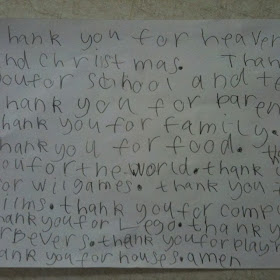 hank you for heaven
nd christmas. Than
you for school and te
hank you for paren
hank you for family.
hank you for food. th
oufortheworld.thank
for wiigames. thank you
ilms.thank you for compu
hankyoufor Lego.thank y
orBevers.thank youforplaym
ank you for houses.amen